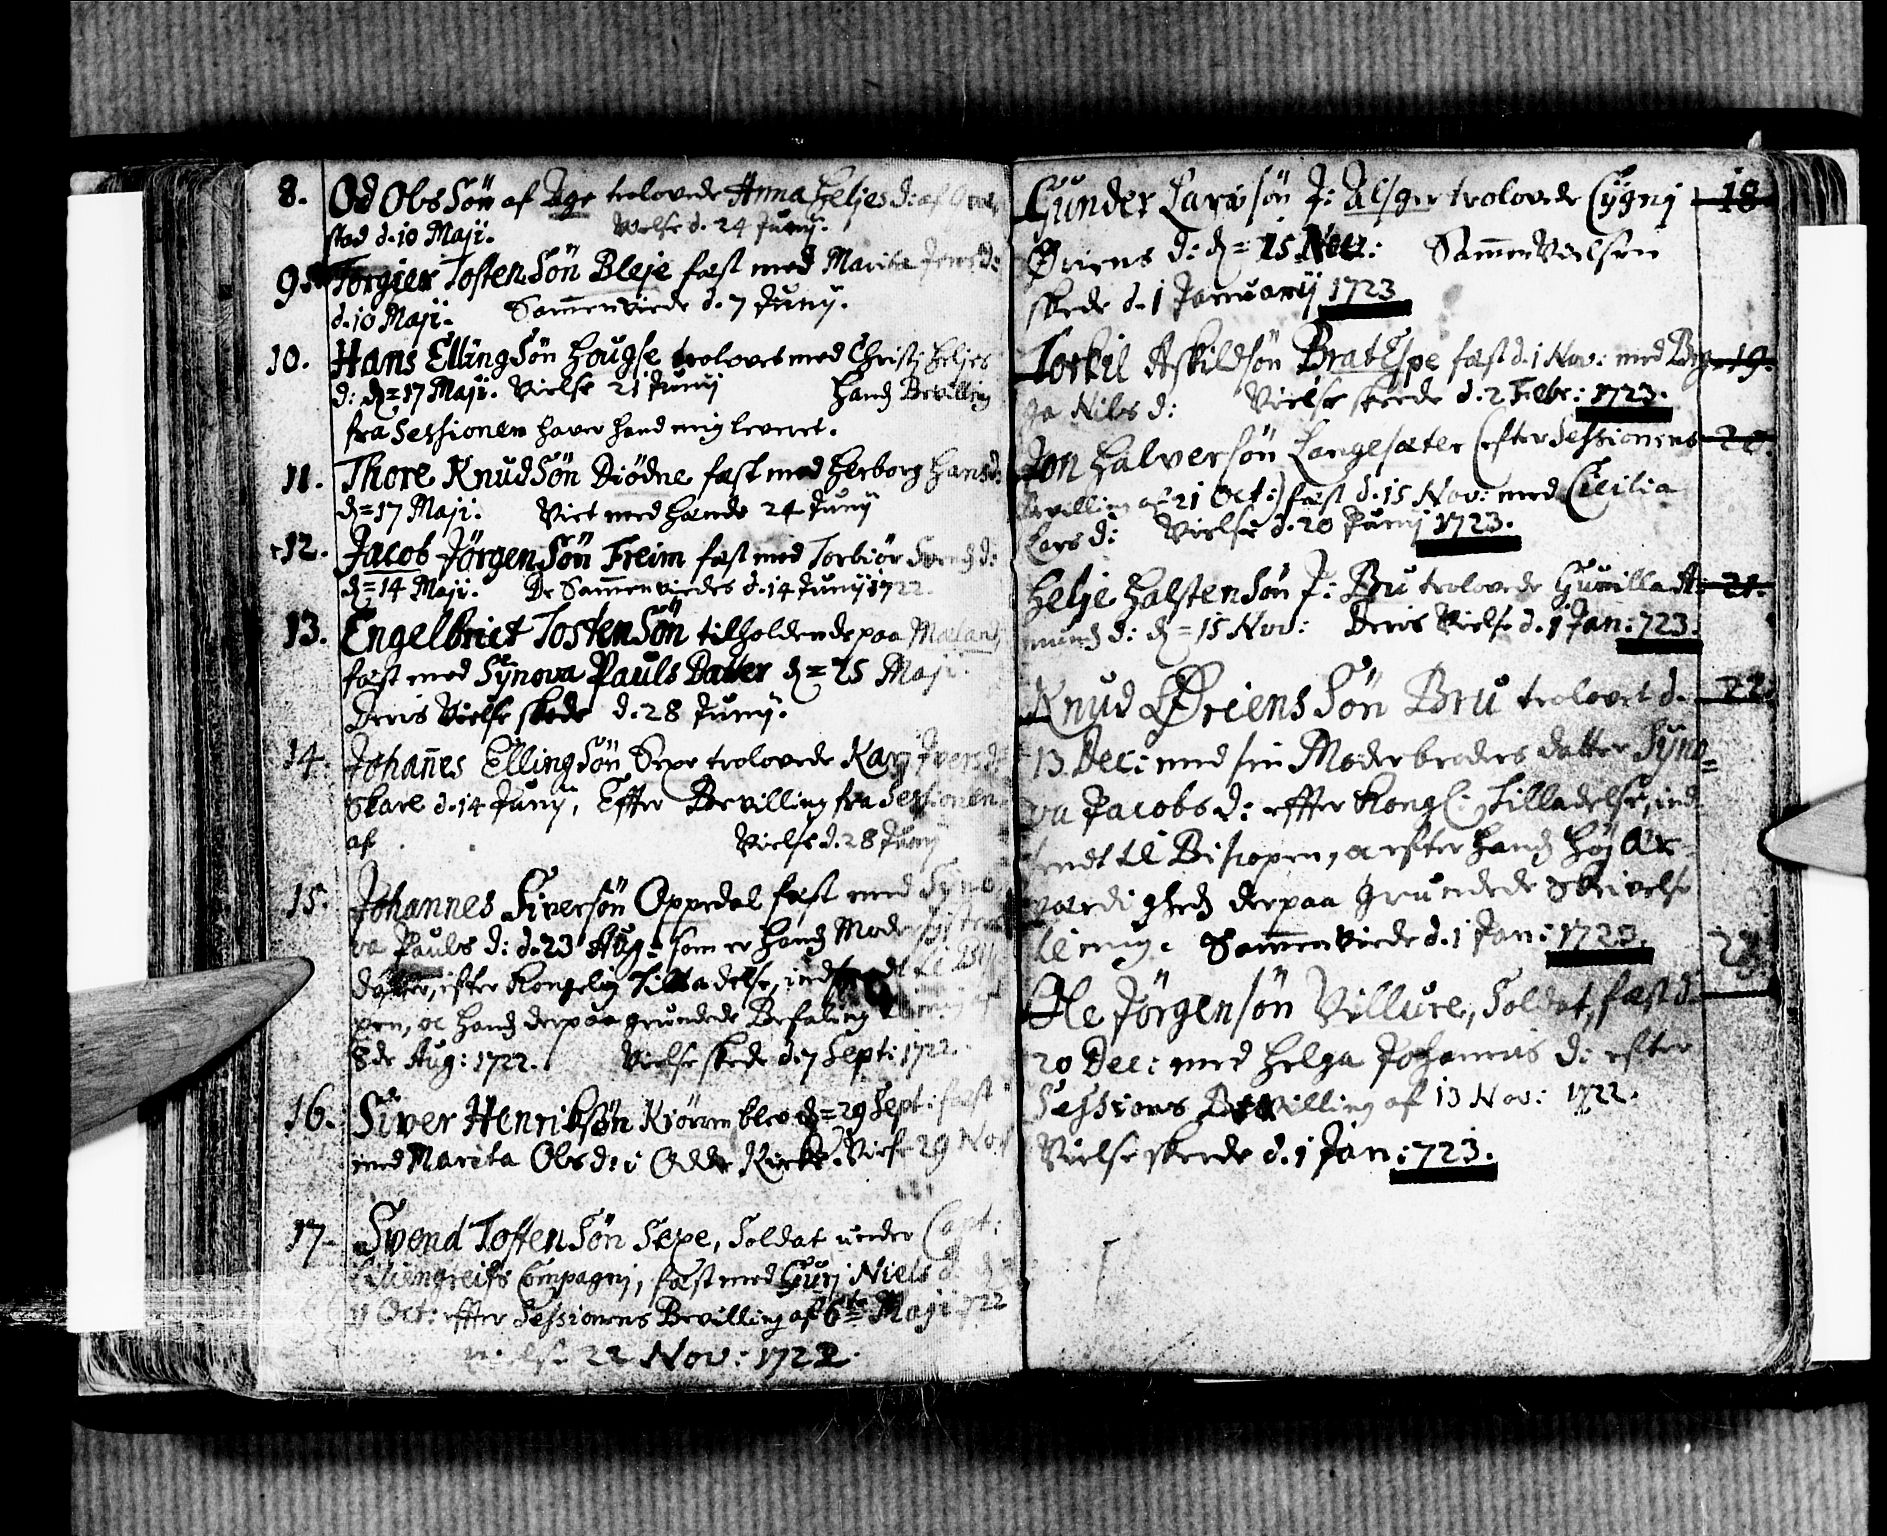 8. Od Olss Søn af Age trolovede Anna Heljes d: af
stad d. 10 Maji. Vielse d. 24 Junij.
9. Torgier Tosten Søn Bleje fæst med Marita Jens d:
d. 10 Maji. Sam̄enviede d. 7 Junij.
10. Hans Elling Søn Hougse troloves med Christj Heljes
d: d = 17 Maji. Vielse 21 Junij Hands Bevilling
fra Sessionen haver hand mig leveret.
11. Thore Knud Søn Diødne fæst med Herborg Hans d:
d = 17 Maji. Viet med hende 24 Junij
12. Jacob Jörgen Søn Freim fæst med Torbiør Svends d:
d = 14 Maji. De Sam̄enviedes d. 14 Junij 1722.
13. Engelbrict Tosten Søn tilholdende paa
fæst med Synova Pauls Datter d = 25 Maji.
Deris Vielse skede d. 28 Junij.
14. Johan̄es Elling Søn Sexe trolovede Karj Ivers d:
Skare d. 14 Junij, Effter Bevilling fra Sessionen
af Vielse d. 28 Junij
15. Johannes Siversøn Oppedal fæst med Syno
va Pauls d: d. 23 Aug: som er hands Moder Søsters
datter, efter Kongelig Tilladelse, indsendt til Bis
pen, oc hands derpaa grundede Befaling til mig af
8de Aug: 1722. Vielse skede d. 7 Sept: 1722.
16. Siver Henriksøn Kiørren blev d = 29 Sept: fæst
med Marita Olss d: i Odde Kirke. Vielse 29 Nov
17. Svend Tosten Søn Sexe, Soldat under Capt:
Liliengreifs Compagnj, fæst med Gurj Niels d.
11 Oct: effter Sessionens Bevilling af 6te Maji 722
Vielse 22 Nov: 1722.
Gunder Larssøn J: Alsger trolovede Sygnj 18
Øriens d: d = 15 Nov: Sam̄envielsen
skede d. 1 Januarij 1723
Torkil Askildsøn BratEspe fæst d. 1 Nov: med Birg 19.
ga Nils d: Vielse skeede d. 2 Febr: 1723.
Jon Halversøn Langesæter (efter Sessionens 20.
Bevilling af 21 Oct:) fæst d. 15 Nov: med Cicilia
Lars d: Vielse d. 20 Junij 1723.
Helje Halsten Søn J: Bru trolovede Gunilla A 21.
munds d: d = 15 Nov: Deris Vielse d. 1 Jan: 723.
Knud Øriens Søn Bru trolovet d. 22.
13 Dec: med sin Moderbroders datter Syno=
va Jacobs d: effter Kongl: Tilladelse, ind
sendt til Bispen, oc efter hands Høj Ær
værdigheds derpaa grundede Skrivelse
til mig. Sam̄enviede d. 1 Jan: 1723. 23
Ole Jörgensøn Villure, Soldat, fæst d.
20 Dec: med Helga Johannis d: efter
Sessions Bevilling af 13 Nov: 1722.
Vielse skeede d. 1 Jan: 723.